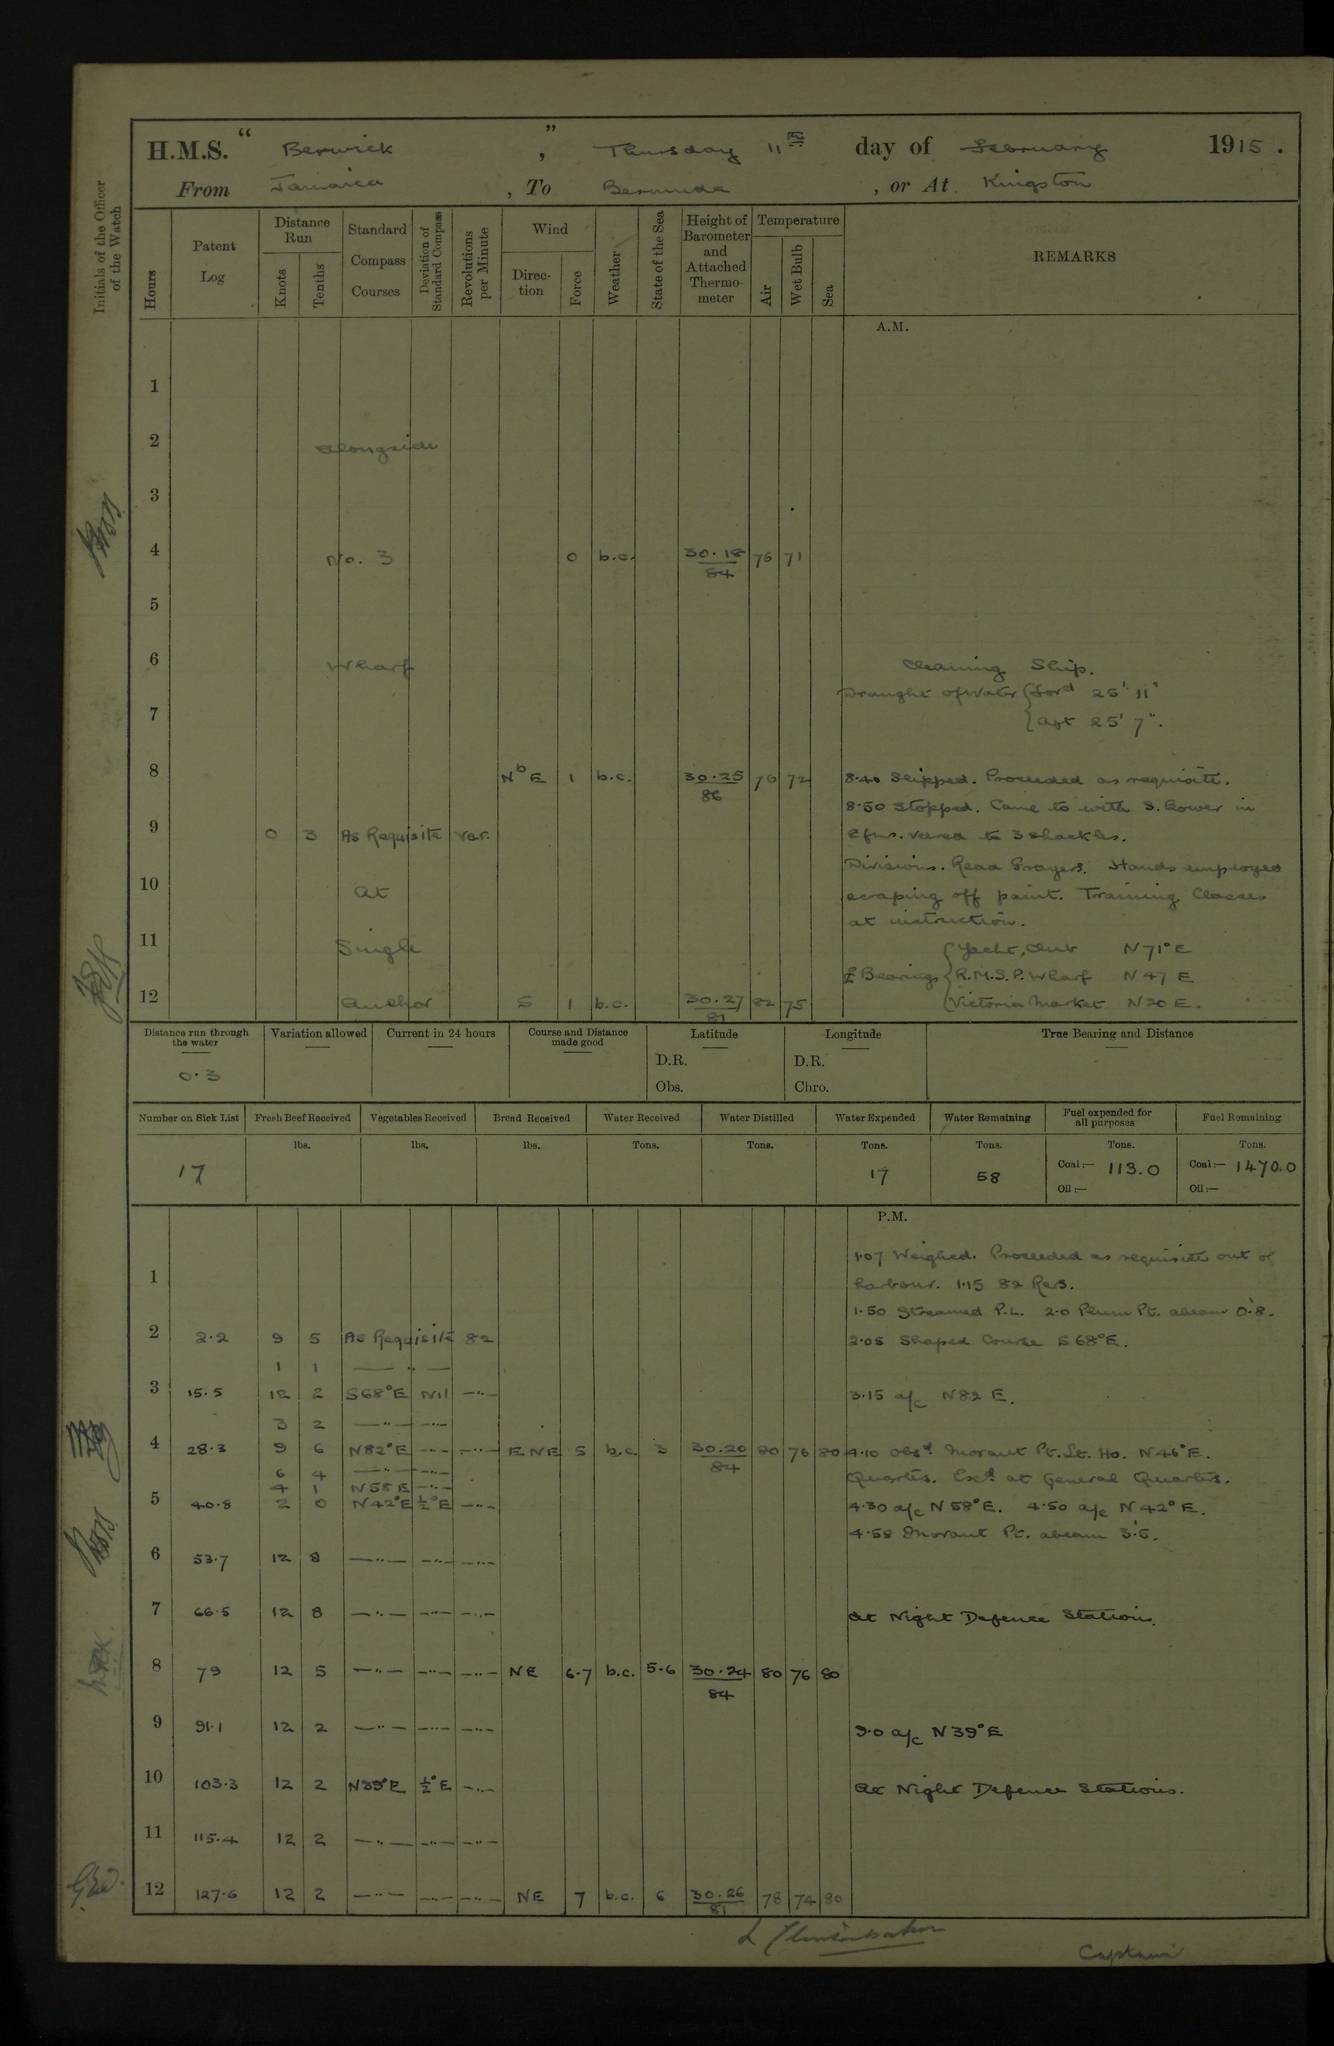 H.M.S. “ Berwick ”, Thursday 11th day of February 1915.
From Jamaica, To Bermuda, or At Kingston
Initials of the Officer of the Watch
Hours
Patent Log
Distance Run
Knots
Tenths
Standard Compass Courses
Deviation of Standard Compass
Revolutions per Minute
Wind
Direction
Force
Weather
State of the Sea
Height of Barometer and Attached Thermometer
Temperature
Air
Wet Bulb
Sea
REMARKS
A.M.
1
2 Alongside
3
4 No. 3 0 b.c. 30.18 76 71
84
5
6 Wharf Cleaning Ship.
Draught of Water { Ford 25' 11"
7 { Aft 25' 7".
8 NbE 1 b.c. 30.25 76 72 8.40 Slipped. Proceeded as requisite.
86
8.50 Stopped. Came to with S. Bower in
9 0 3 As Requisite var. fms. veered to 3 shackles.
Divisions. Read Prayers. Hands employed
10 At scraping off paint. Training Classes
at instruction.
11 Single { Yacht Club N 71° E
Bearings { R.M.S.P. Wharf N 47 E
12 Anchor S 1 b.c. 30.27 82 75 { Victoria Market N 20 E.
81
Distance run through the water
Variation allowed
Current in 24 hours
Course and Distance made good
Latitude
Longitude
True Bearing and Distance
D.R. D.R.
0.3
Obs. Chro.
Number on Sick List
Fresh Beef Received
Vegetables Received
Bread Received
Water Received
Water Distilled
Water Expended
Water Remaining
Fuel expended for all purposes
Fuel Remaining
lbs. lbs. lbs. Tons. Tons. Tons. Tons. Tons. Tons.
17 17 58 Coal:— 113.0 Coal:— 1470.0
Oil:— Oil:—
P.M.
1.07 Weighed. Proceeded as requisite out of
1 harbour. 1.15 82 Revs.
1.50 Streamed P.L. 2.0 Plum Pt. abeam 0'.8.
2 2.2 9 5 As Requisite 82 2.05 Shaped Course S 68° E.
1 1 — " —
3 15.5 12 2 S68°E Nil —"— 3.15 a/c N 82 E.
3 2 —"— —"—
4 28.3 9 6 N82°E —"— —"— ENE 5 b.c. 3 30.20 80 76 80 4.10 Obsd. Morant Pt. Lt. Ho. N 46° E.
84
6 4 —"— —"— Quarters. Exd. at General Quarters.
4 1 N 58 E —"—
5 40.8 2 0 N 42°E ½°E —"— 4.30 a/c N 58° E. 4.50 a/c N 42° E.
4.58 Morant Pt. abeam
6 53.7 12 8 —"— —"— —"—
7 66.5 12 8 —"— —"— —"— At Night Defence Stations.
8 79 12 5 —"— —"— —"— NE 6.7 b.c. 5.6 30.24 80 76 80
84
9 91.1 12 2 —"— —"— —"— 9.0 a/c N 39° E
10 103.3 12 2 N39°E ½°E —"— At Night Defence Stations.
11 115.4 12 2 —"— —"— —"—
12 127.6 12 2 —"— —"— —"— NE 7 b.c. 6 30.26 78 74 80
81
Captain